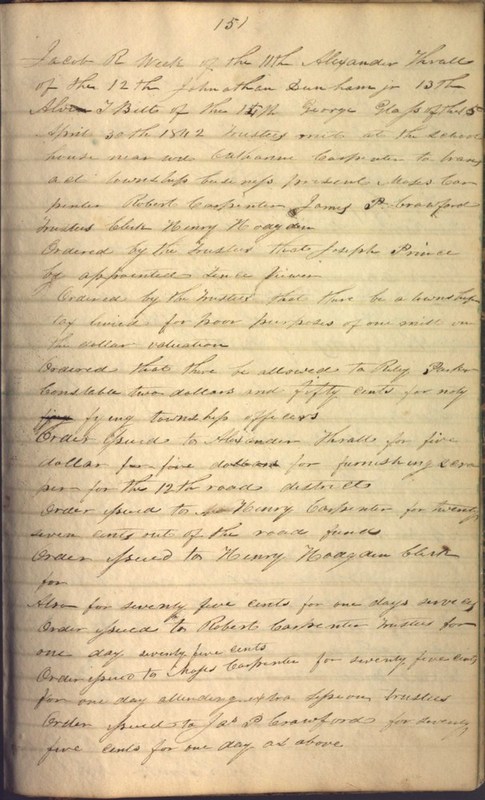 151
Jacob R Week of the 11th Alexander Thrall
of the 12th Johnathan Dunham jr 13th
Alvin T Belts of the 14th George Glass of the 15
April 30th 1842 Trustees met at the school
house near wd Catharine Carpenter to trans
act township business present Moses Car
penter Robert Carpenter James P Crawford
Trustees Clerk Henry Hodgden
Ordered by the Trustees that Joseph Prince
be appointed Fence Viewer
Ordered by the Trustees that thare be a township
tax levied for poor purposes of one mill on
the dollar valuation
Ordered that thare be allowed to Riley Parker
Constable two dollars and fifty cents for noty
fying township officers
Order issued to Alexander Thrall for five
dollar for five dollars for furnishing scra
per for the 12th road district
Order issued to Henry Carpenter for twenty
seven cents out of the road fund
Order issued to Henry Hodgden Clerk
for
Also for seventy five cents for one days servces
Order issued to Robert Carpenter Trustee for
one day seventy five cents
Order issued to Moses Carpenter for seventy five cents
for one day attending extra session trustees
Order issued to Jas P Crawford for seventy
five cents for one day as above